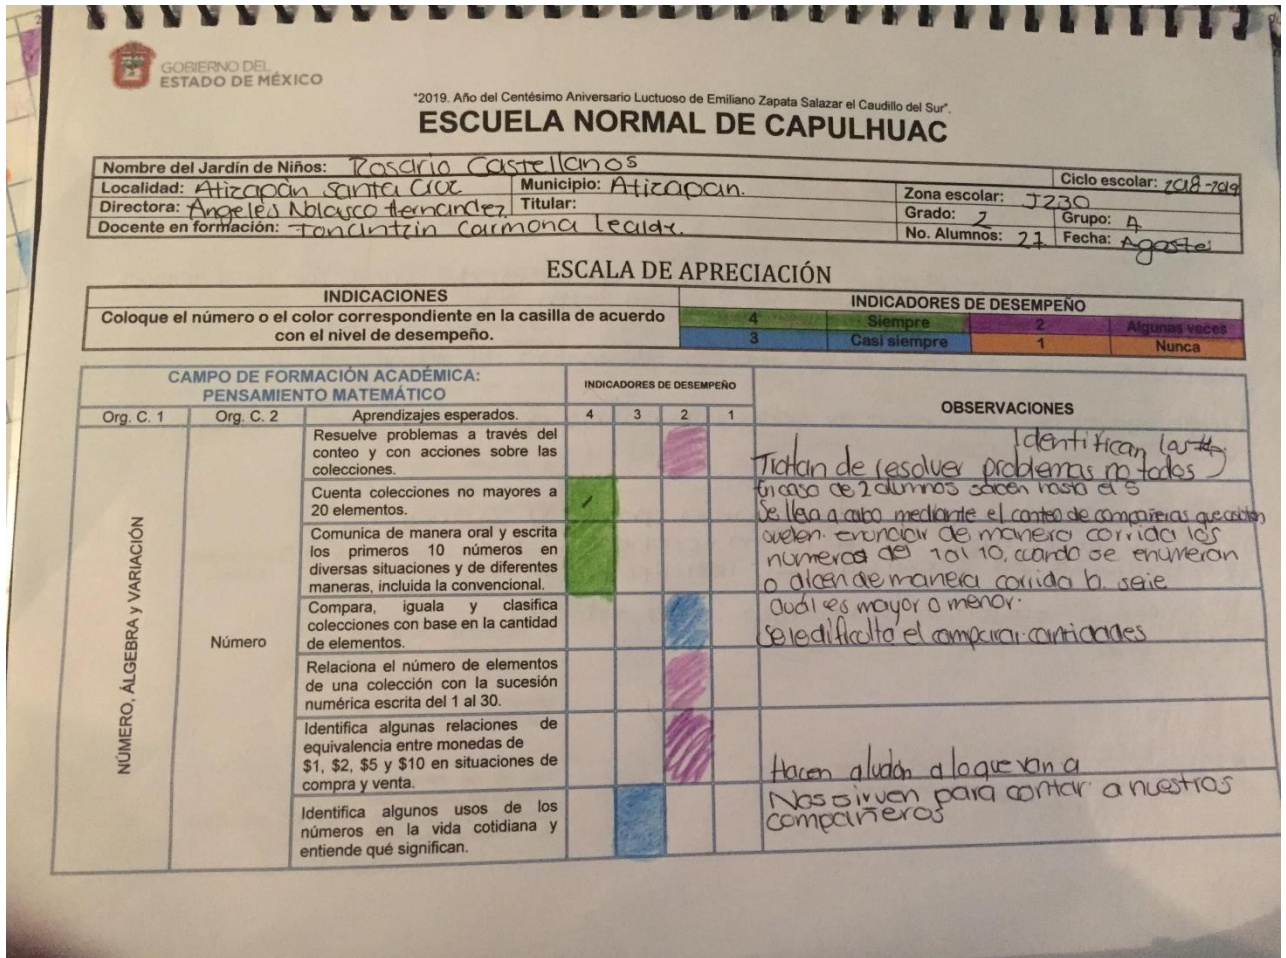 GOBIERNO DEL
ESTADO DE MÉXICO
"2019. Año del Centésimo Aniversario Luctuoso de Emiliano Zapata Salazar el Caudillo del Sur".
ESCUELA NORMAL DE CAPULHUAC
Nombre del Jardín de Niños: Rosario Castellanos
Ciclo escolar: 2018-2019
Localidad: Atizapàn Santa Cruz Municipio: Atizapan. Zona escolar: J230
Directora: Angeles Nolasco Hernandez Titular: Grado: 2 Grupo: A
Docente en formación: Tonantzin Carmona No. Alumnos: 27 Fecha: Agosto
ESCALA DE APRECIACIÓN
INDICACIONES
Coloque el número o el color correspondiente en la casilla de acuerdo
con el nivel de desempeño.
INDICADORES DE DESEMPEÑO
4 Siempre 2 Algunas veces
3 Casi siempre 1 Nunca
CAMPO DE FORMACIÓN ACADÉMICA:
PENSAMIENTO MATEMÁTICO
INDICADORES DE DESEMPEÑO
OBSERVACIONES
Org. C. 1 Org. C. 2 Aprendizajes esperados. 4 3 2 1
NÚMERO, ÁLGEBRA y VARIACIÓN
Número
Resuelve problemas a través del
conteo y con acciones sobre las
colecciones.
Identifican las #
Tratan de resolver problemas no todos
Cuenta colecciones no mayores a
20 elementos.
En caso de 2 alumnos saben hasta el 5
Se lleva a cabo mediante el conteo de compañeras que
Comunica de manera oral y escrita
los primeros 10 números en
diversas situaciones y de diferentes
maneras, incluida la convencional.
suelen enunciar de manera corrida los
numeros del 1 al 10, cuando se enumeran
o dicen de manera corrida
Compara, iguala y clasifica
colecciones con base en la cantidad
de elementos.
cuál es mayor o menor.
Se le dificulta el comparar cantidades
Relaciona el número de elementos
de una colección con la sucesión
numérica escrita del 1 al 30.
Identifica algunas relaciones de
equivalencia entre monedas de
$1, $2, $5 y $10 en situaciones de
compra y venta.
Hacen a lo que van a
Identifica algunos usos de los
números en la vida cotidiana y
entiende qué significan.
Nos sirven para contar a nuestros
compañeros